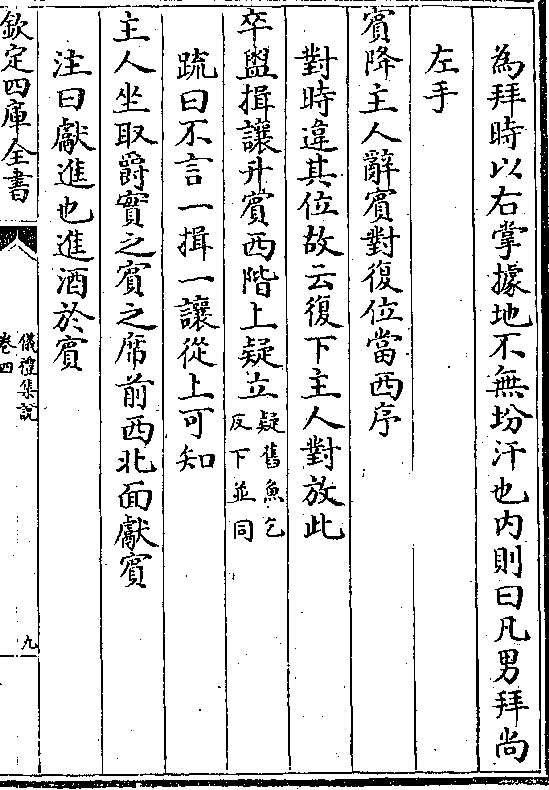 為拜時以右掌據地不無坋汙也内則曰凡男拜尚
左手
賓降主人辭賓對復位當西序
對時違其位故云復下主人對放此
卒盥揖讓升賓西階上疑立疑舊魚乞反下並同
疏曰不言一揖一讓從上可知
主人坐取爵實之賓之席前西北面獻賓
注曰獻進也進酒於賓
欽定四庫全書
儀禮集說
卷四
九